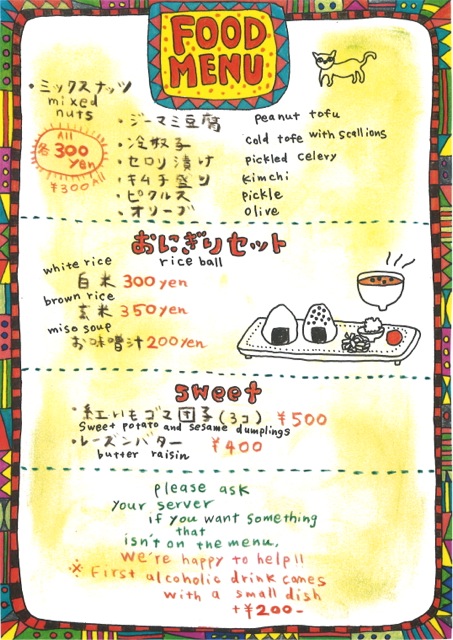 FOOD
MENU
・ミックスナッツ
mixed
nuts
All
各 300
yen
¥300 All
・ジーマミ豆腐 peanut tofu
・冷奴子 cold tofe with scallions
・セロリ漬け pickled celery
・キムチ盛り kimchi
・ピクルス pickle
・オリーブ olive
おにぎりセット
rice ball
white rice
白米 300yen
brown rice
玄米 350yen
miso soup
お味噌汁 200yen
sweet
・紅いもゴマ団子(3コ) ¥500
sweet potato and sesame dumplings
・レーズンバター ¥400
butter raisin
please ask
your server
if you want something
that
isn't on the menu.
We're happy to help!!
※ First alcoholic drink comes
with a small dish
+¥200-